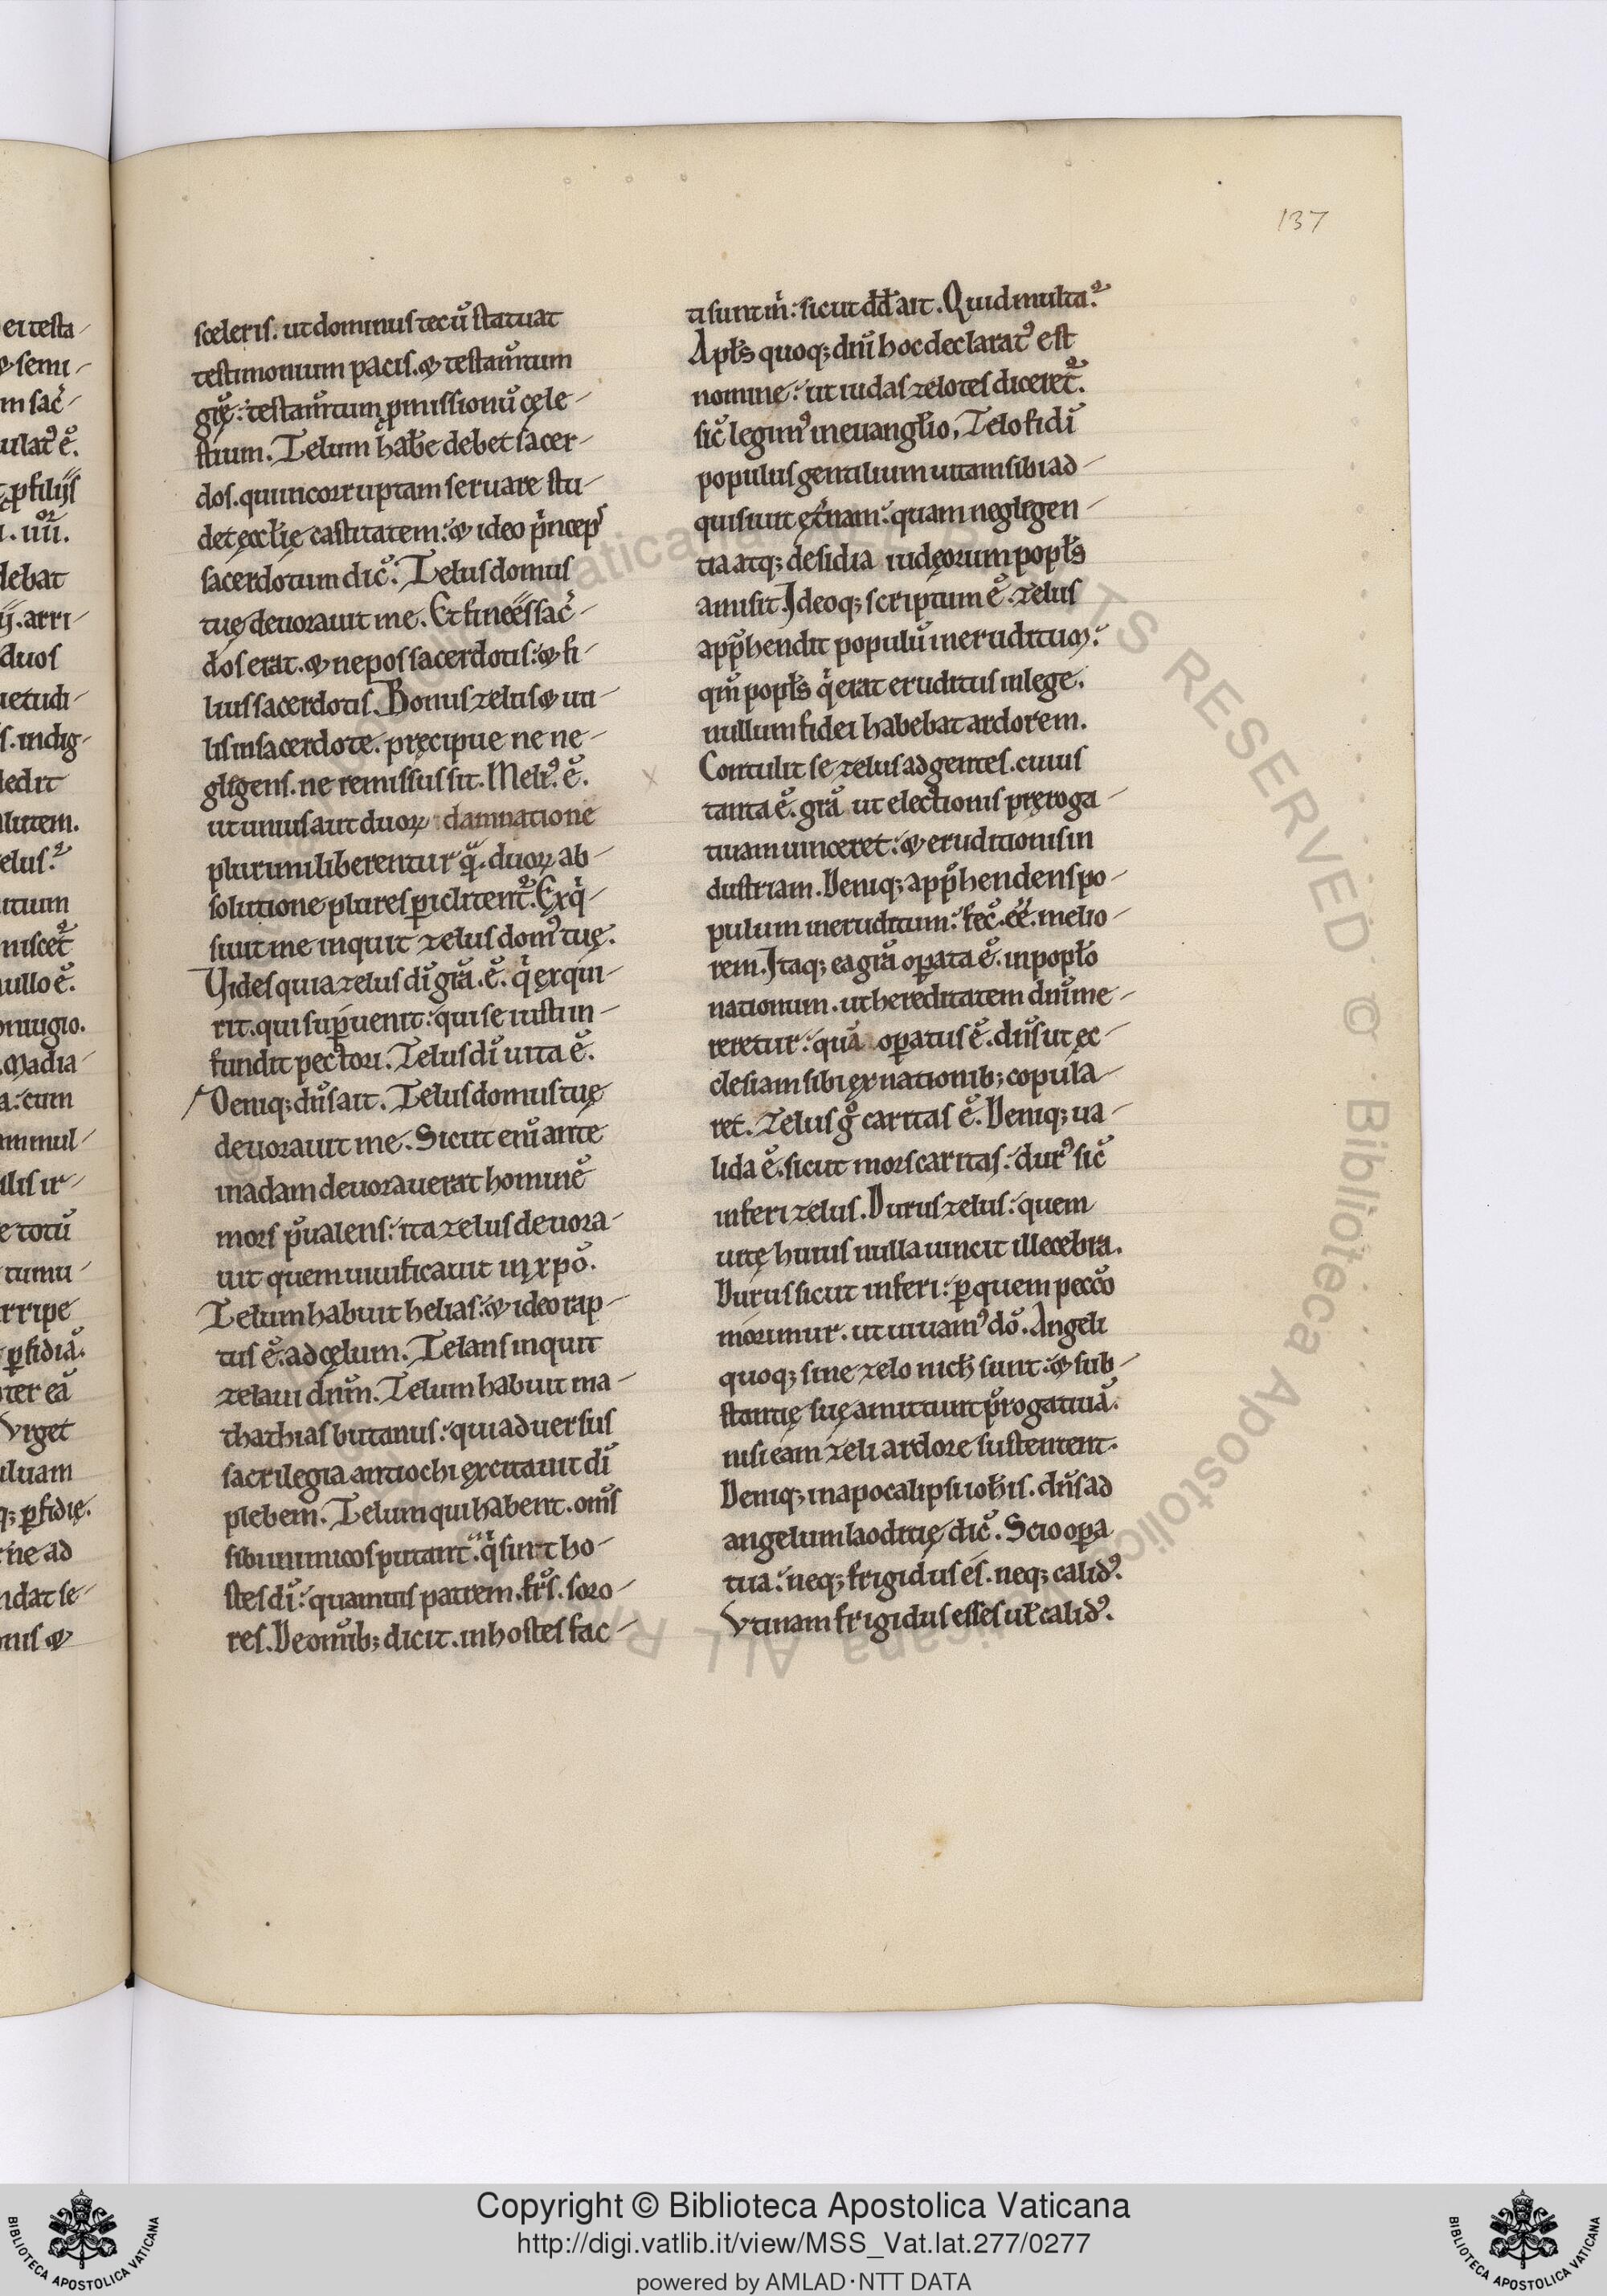 137
ei testa-
⁊ semi-
m sac̄-
ulatꝰ ē.
ꝑ filijs
debat
ij. arri-
duos
uetudi-
s. indig-
dedit
lutem.
elus?
itium
nullo ē.
oniugio.
Madia-
a: cum
ilis ir-
e totū
tumu-
rripe
ꝑfidiā.
ter eā
Vrget
uluam
q; ꝑfidię.
ne ad
ndat se-
onis ⁊
sceleris. ut dominus tecū statuat
testimonium pacis. ⁊ testam̄tum
gię: testam̄tum ꝓmissionū cęle-
stium. Zelum hab̄e debet sacer-
dos. qui incorruptam seruare stu-
det ęccl̄ię castitatem: ⁊ ideo p̍nceps
sacerdotum dic̄: Zelus domus
tuę deuorauit me. Et finees sac̄-
dos erat. ⁊ nepos sacerdotis: ⁊ fi-
lius sacerdotis. Bonus zelus ⁊ uti-
lis in sacerdote. pręcipue ne ne-
glígens. ne remissus sit. Meliꝰ ē.
ut unius aut duoꝝ damnatione
plurimi liberentur q̄. duoꝝ ab-
solutione plures ꝑiclitent᷑. Exq̍-
siuit me inquit zelus domꝰ tuę.
Vides quia zelus dī grā. ē. q̍ exqui-
rit. qui suꝑuenit: qui se iusti in-
fundit pectori. Zelus dī uita ē.
Deniq; dn̄s ait. Zelus domus tuę
deuorauit me. Sicut eni̅ ante
in adam deuorauerat hominē
mors p̄ualens: ita zelus deuora-
uit quem uiuificauit in xpō.
Zelum habuit helias: ⁊ ideo rap-
tus ē. ad cęlum. Zelans inquit
zelaui dnm̄. Zelum habuit ma-
thathias butanus: qui aduersus
sacrilegia antiochi excitauit dī
plebem. Zelum qui habent. om̄s
sibi inimicos putant. q̍ sunt ho-
stes dī: quamuis patrem. fr̄s. soro-
res. De om̄ib; dicit. in hostes fac-
ti sunt m̍: sicut dd̄ ait. Quid multa?
Apl̄s quoq; dnī hoc declaratꝰ est
nomine: ut iudas zelotes diceret᷑.
sic̄ legimꝰ in euangl̄io, Zelo fidī
populus gentilium uitam sibi ad-
quisiuit ęt̄nam: quam neglegen-
tia atq; desidia iudęorum popl̄s
amisit. Ideoq; scriptum ē. zelus
app̄hendit populū ineruditum:
qm̄ popl̄s q̍ erat eruditus in lege.
nullum fidei habebat ardorem.
Contulit se zelus ad gentes. cuius
tanta ē. grā ut electionis pręroga-
tiuam uinceret: ⁊ eruditionis in
dustriam. Deniq; app̄hendens po-
pulum ineruditum: fec̄. eē. melio-
rem. Itaq; ea grā oꝑata ē. in popl̄o
nationum. ut hereditatem dnī me-
reretur: quā oꝑatus ē. dn̄s ut ec-
clesiam sibi ex nationib; copula-
ret. Zelus gͦ caritas ē. Deniq; ua-
lida ē. sicut mors caritas: durꝰ sic̄
inferi zelus. Durus zelus: quem
uitę huius nulla uincit illecebra.
Durus sicut inferi: ꝑ quem peccō
morimur. ut uiuamꝰ dō. Angeli
quoq; sine zelo nich̄ sunt: ⁊ sub-
stantię suę amittunt p̄rogatiuā.
nisi eam zeli ardore sustentent.
Deniq; in apocalipsi ioh̄is. dn̄s ad
angelum laoditię dic̄. Scio oꝑa
tua: neq; frigidus es. neq; calidꝰ.
Vtinam frigidus esses ul̄ calidꝰ.
Copyright © Biblioteca Apostolica Vaticana
http://digi.vatlib.it/view/MSS_Vat.lat.277/0277
powered by AMLAD·NTT DATA
BIBLIOTECA APOSTOLICA VATICANA
BIBLIOTECA APOSTOLICA VATICANA